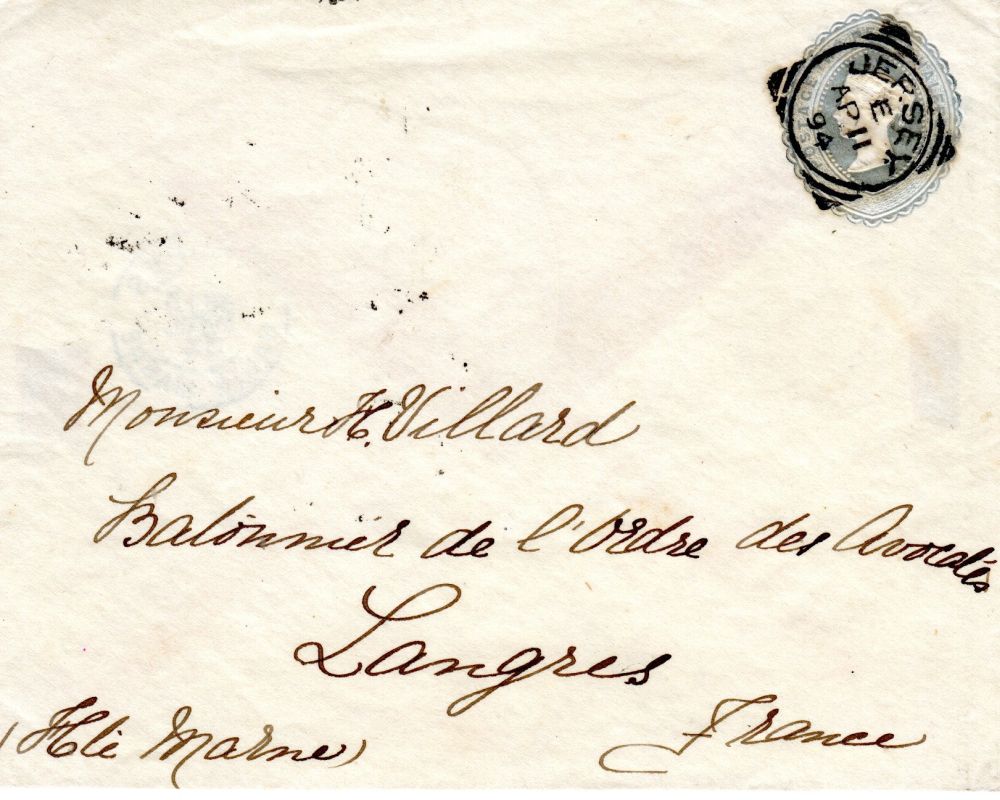 JERSEY
E
AP 11
94
Monsieur H. Villard
Batonnier de l'Ordre des Avocats
Langres
(Hte Marne)
France